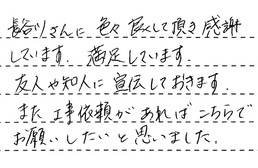 長谷川さんに色々良くして頂き感謝
しています。満足しています。
友人や知人に宣伝しておきます。
また工事依頼があればこちらで
お願いしたいと思いました。